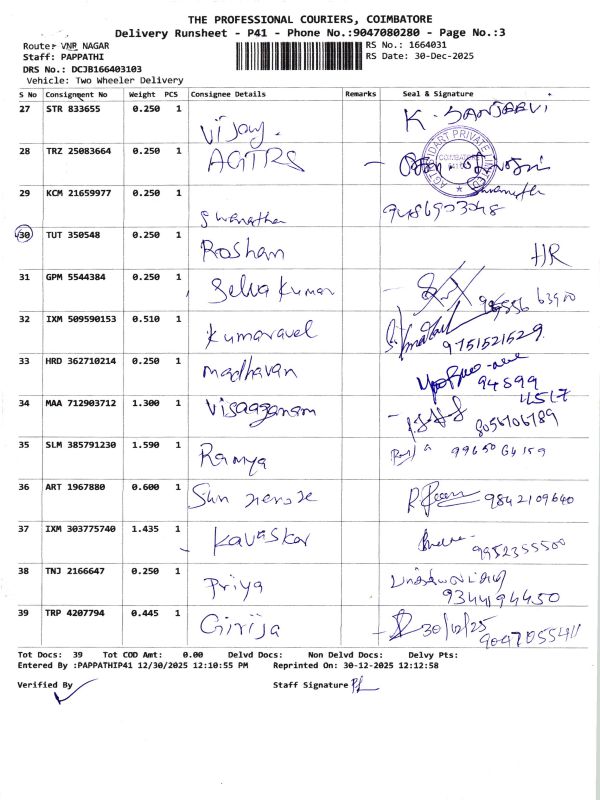 THE PROFESSIONAL COURIERS, COIMBATORE
Delivery Runsheet - P41 - Phone No.:9047080280 - Page No.:3
Route: VNR NAGAR
RS No.: 1664031
Staff: PAPPATHI
RS Date: 30-Dec-2025
DRS No.: DCJB166403103
Vehicle: Two Wheeler Delivery
S No Consignment No Weight PCS Consignee Details Remarks Seal & Signature
27 STR 833655 0.250 1 Vijay. K. SANJEEVI
28 TRZ 25083664 0.250 1 AGTRS
29 KCM 21659977 0.250 1 Swanatha 9486903048
30 TUT 350548 0.250 1 Roshan HR
31 GPM 5544384 0.250 1 Selva Kumar 63900
32 IXM 509590153 0.510 1 Kumaravel 9751521529
33 HRD 362710214 0.250 1 madhavan 94899
4517
34 MAA 712903712 1.300 1 Visaaganam 8056706789
35 SLM 385791230 1.590 1 Ramya 9965064159
36 ART 1967880 0.600 1 Sun 9842109640
37 IXM 303775740 1.435 1 Kavaskar 9952355500
38 TNJ 2166647 0.250 1 Priya 9344194450
39 TRP 4207794 0.445 1 Girija 30/12/25 9047055411
Tot Docs: 39 Tot COD Amt: 0.00 Delvd Docs: Non Delvd Docs: Delvy Pts:
Entered By :PAPPATHIP41 12/30/2025 12:10:55 PM Reprinted On: 30-12-2025 12:12:58
Verified By Staff Signature